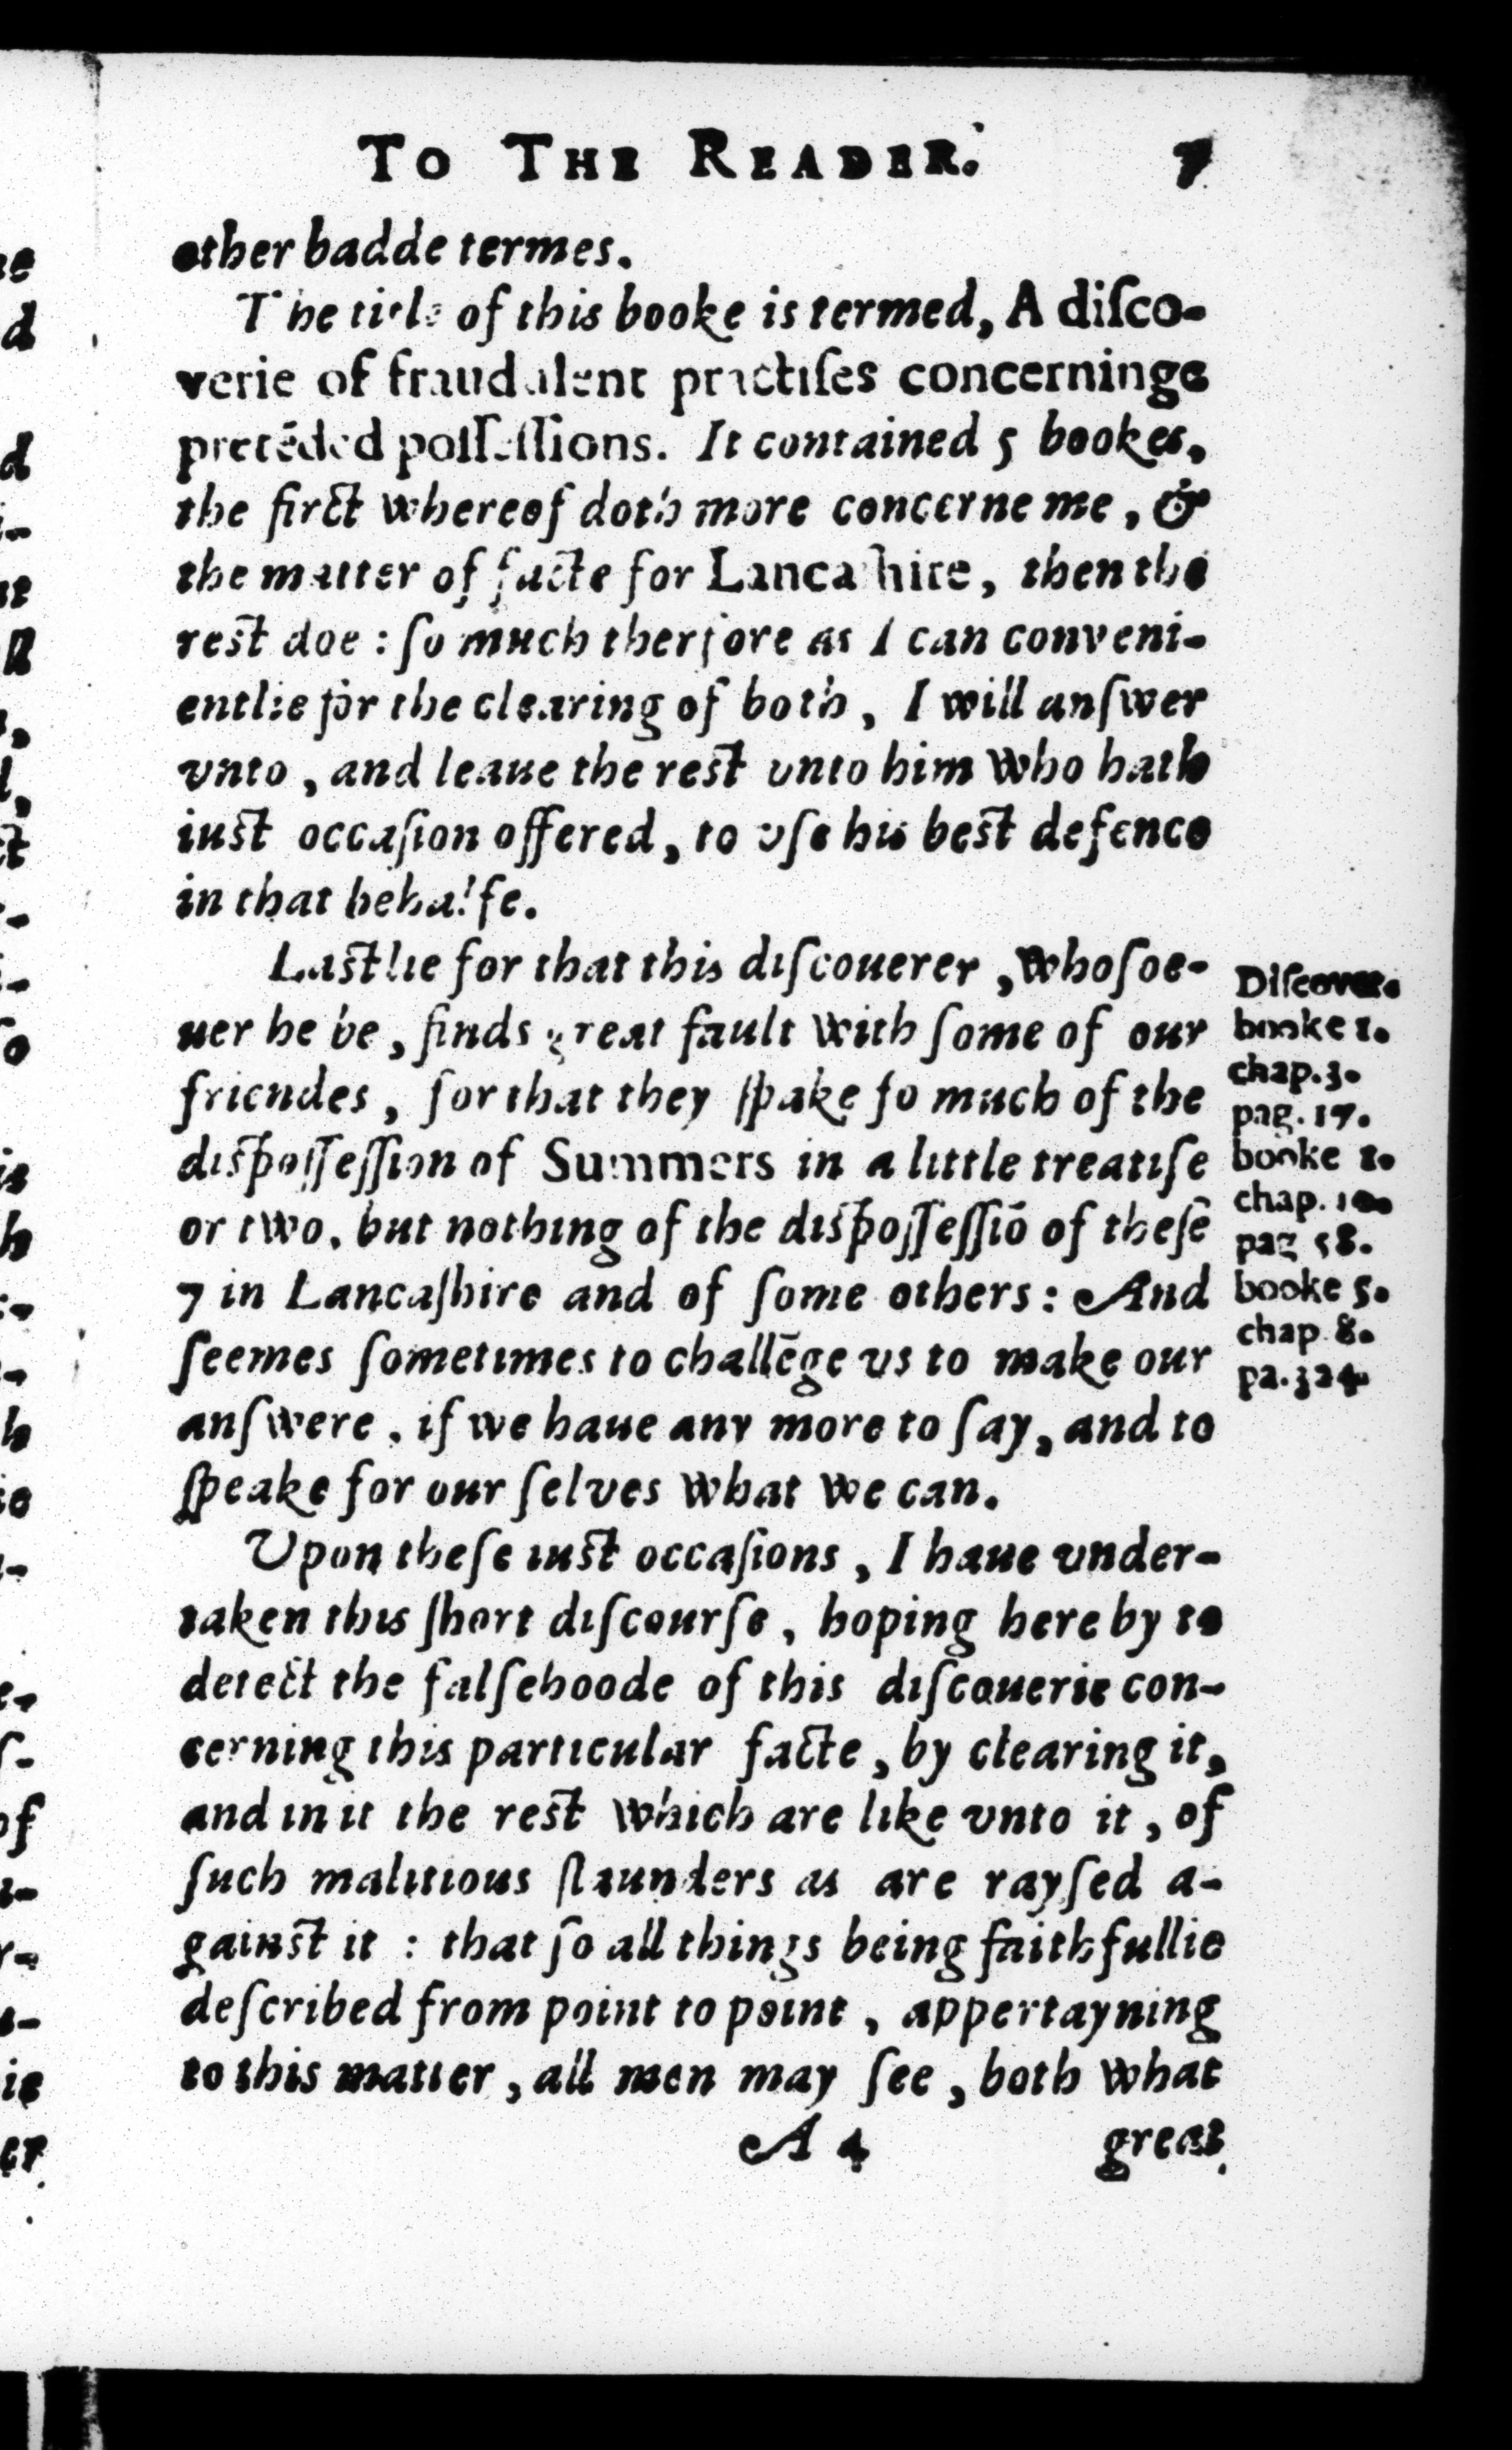 TO THE READER. 7
other badde termes.
The title of this booke is termed, A diſco-
verie of fraudulent practiſes concerninge
pretēded poſſeſſions. It contained 5 bookes,
the firct whereof doth more concerne me, &
the matter of facte for Lancaſhire, then the
reſt doe : ſo much therfore as I can conveni-
entlie for the clearing of both, I will anſwer
vnto, and leaue the reſt vnto him who hath
iuſt occaſion offered, to vſe his beſt defence
in that behalfe.
Laſtlie for that this diſcouerer, whoſoe-
uer he be, finds great fault with ſome of our
friendes, for that they ſpake ſo much of the
diſpoſſeſſion of Summers in a little treatiſe
or two, but nothing of the diſpoſſeſſiō of theſe
7 in Lancaſhire and of ſome others: And
ſeemes ſometimes to challēge vs to make our
anſwere, if we haue any more to ſay, and to
ſpeake for our ſelves what we can.
Diſcover.
booke 1.
chap. 3.
pag. 17.
booke 1.
chap. 10.
pag 58.
booke 5.
chap 8.
pa. 324
Upon theſe iuſt occaſions, I haue vnder-
taken this ſhort diſcourſe, hoping here by to
detect the falſehoode of this diſcouerie con-
cerning this particular facte, by clearing it,
and in it the reſt which are like vnto it, of
ſuch malitious ſlaunders as are rayſed a-
gainſt it : that ſo all things being faithfullie
deſcribed from point to point, appertayning
to this matter, all men may ſee, both what
A 4 great